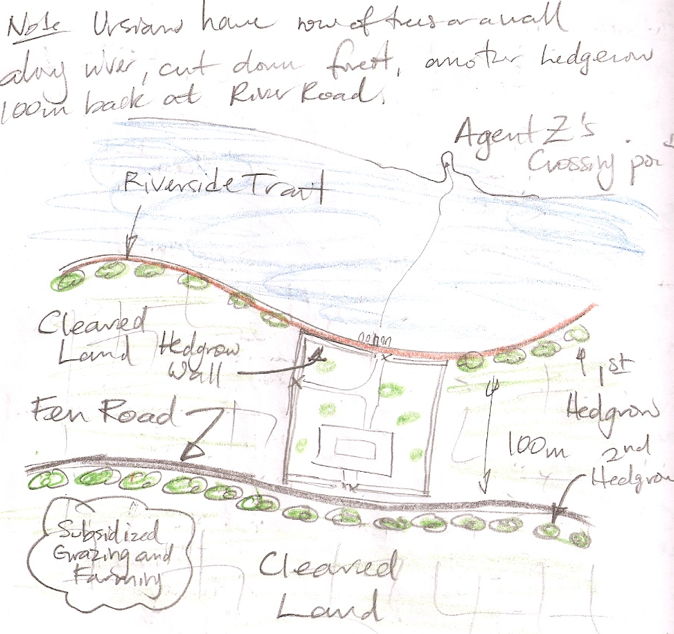 Note Ursians have row of trees or a wall
along river, cut down forest, another hedgerow
100m back at River Road.
Agent Z's
Crossing poi
Riverside Trait
Cleared
Land
Hedgrow
Wall
1st
Hedgrow
Fen Road
100m
2nd
Hedgrow
Subsidized
Grazing and
Farming
Cleared
Land